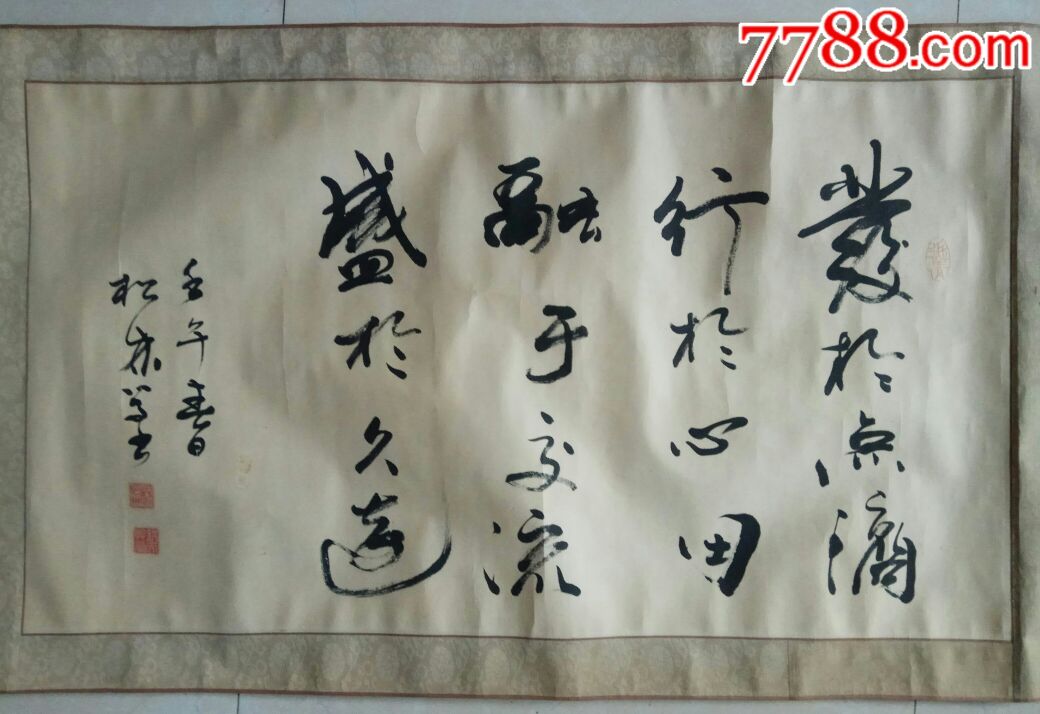 7788.com
發於点滴
行於心田
融于交流
盛於久遠
壬午春日
松林